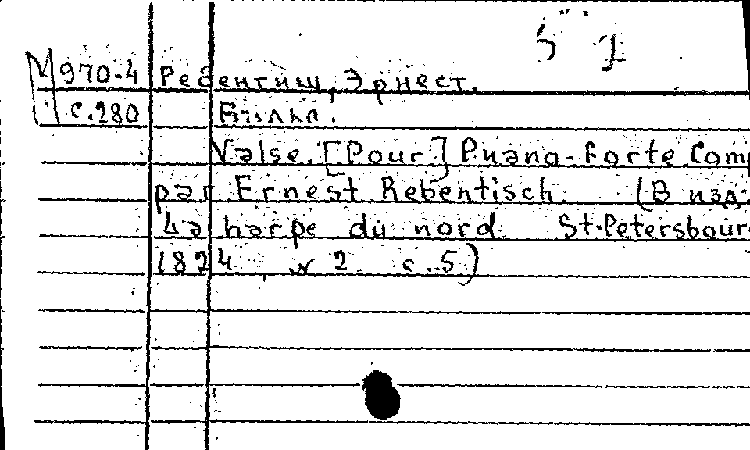 51
М970-4 Ребентиш, Эрнест.
с.280 Вальс.
Valse. [Pour] Piano-Forte Comp
par Ernest Rebentisch. (В изд.
La harpe du nord. St-Petersbour
1824, N 2. с.5)